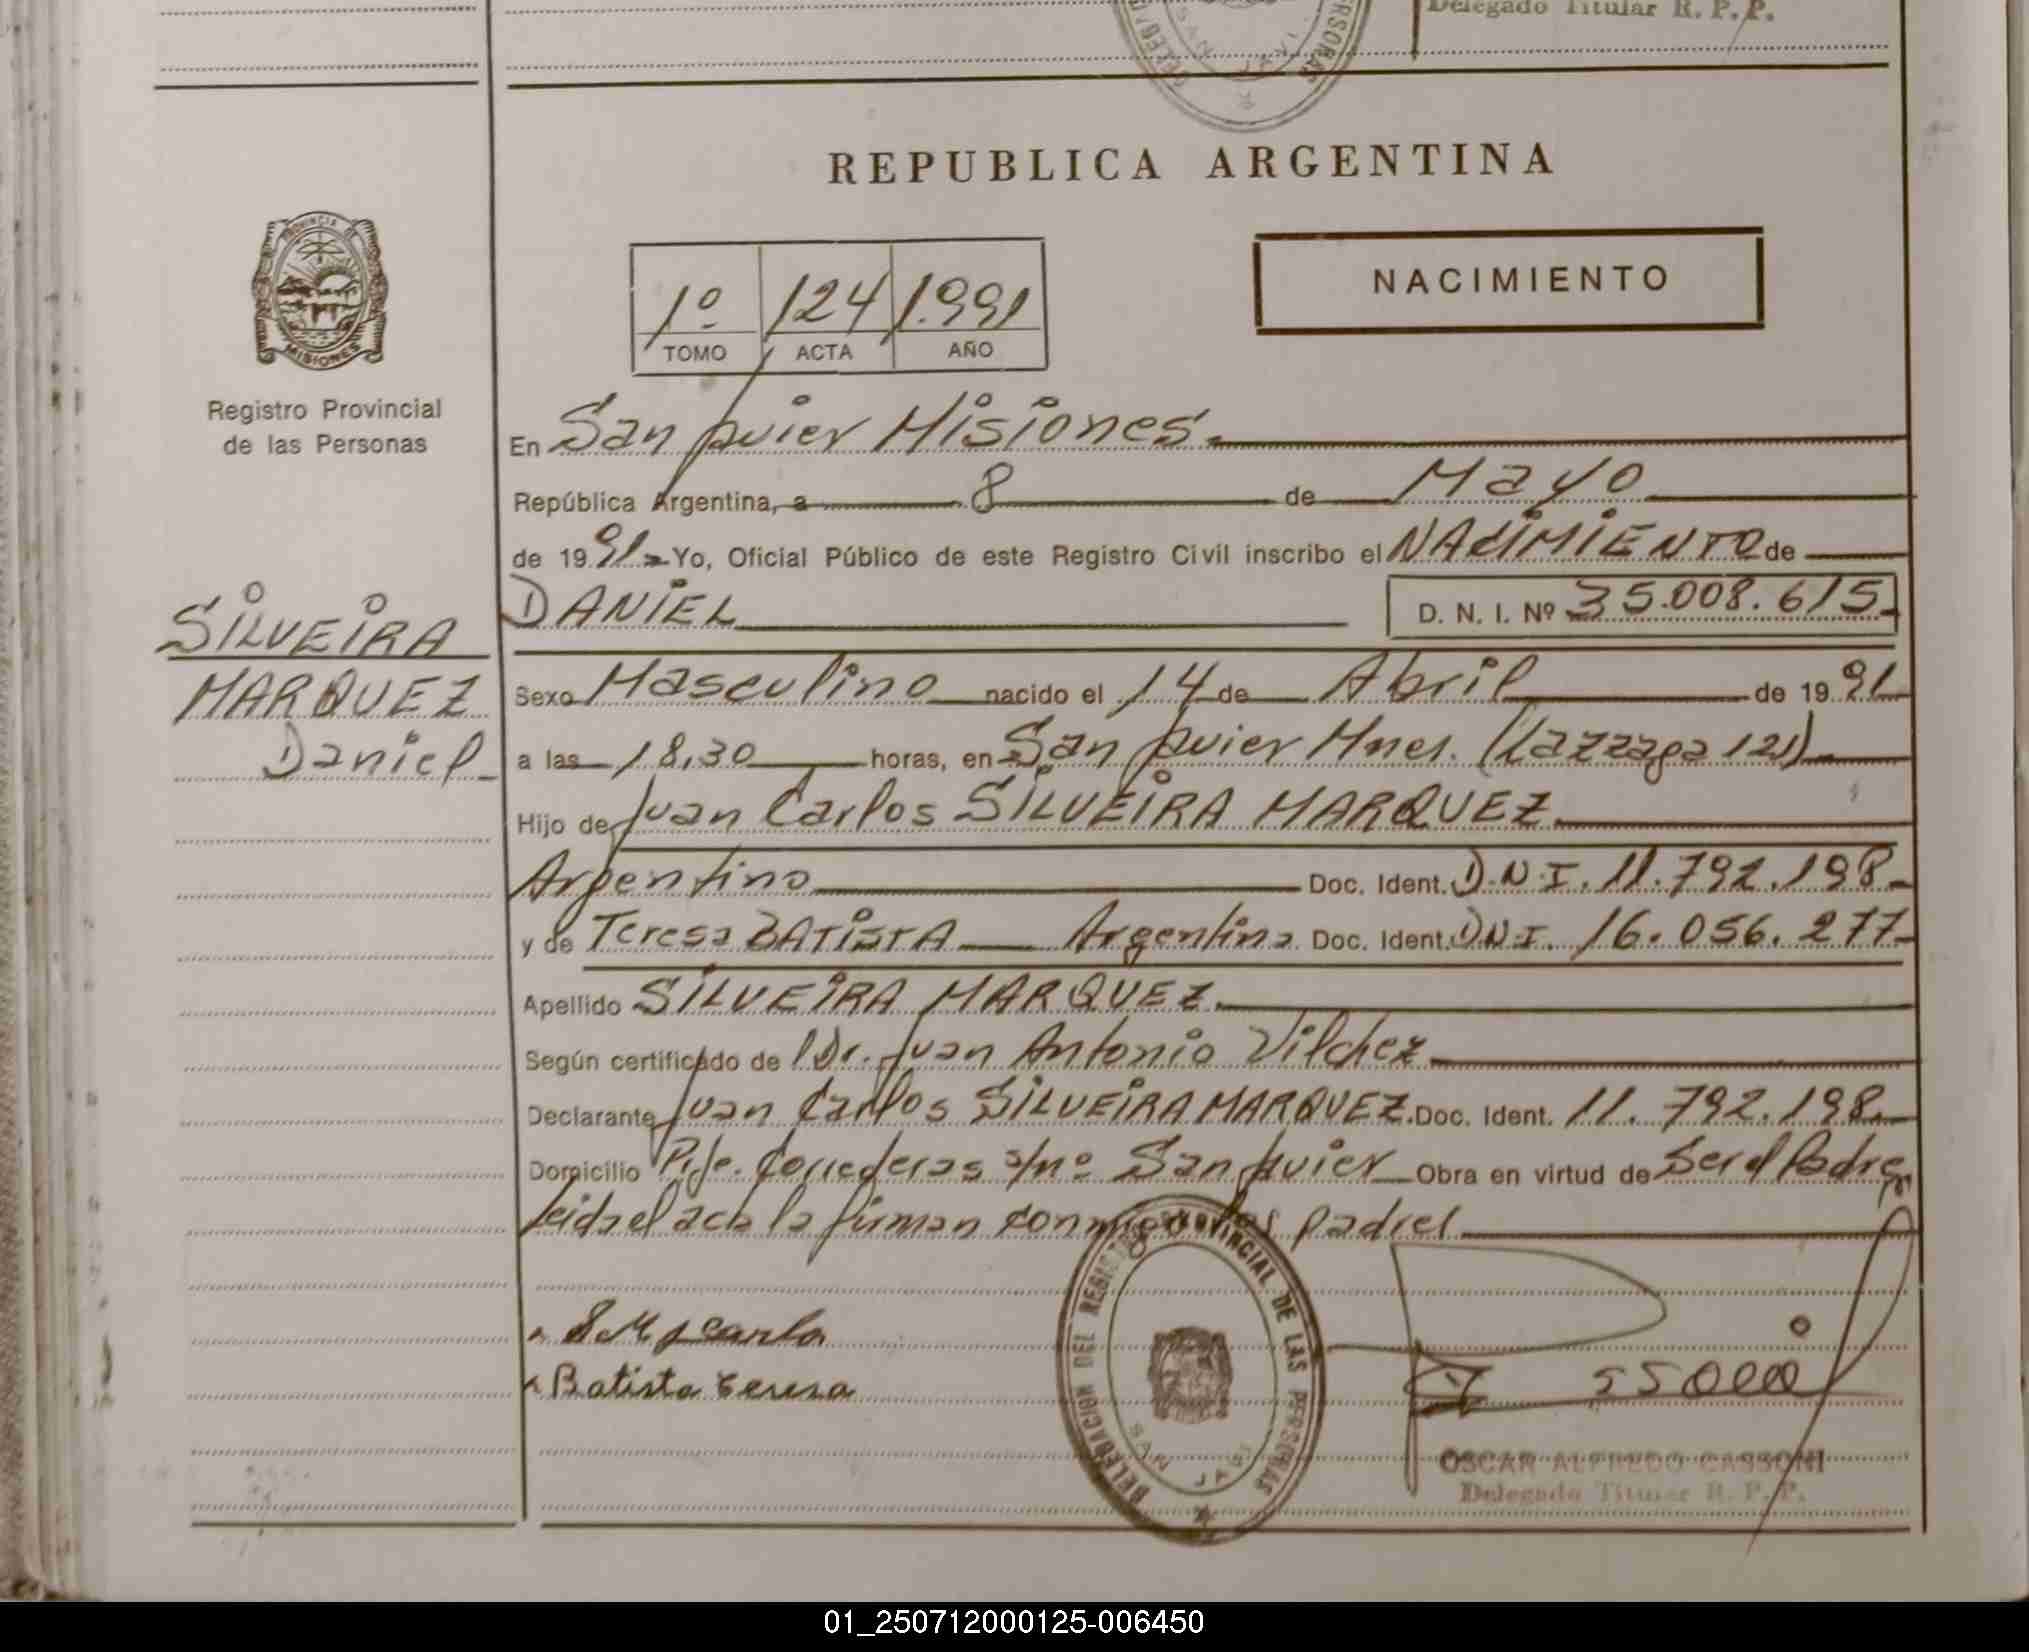 Delegado Titular R. P. P.
REPUBLICA ARGENTINA
PROVINCIA DE
MISIONES
Registro Provincial
de las Personas
NACIMIENTO
1º 124 1.991
TOMO ACTA AÑO
En San Javier Misiones.
República Argentina, a 8 de Mayo
de 1991 Yo, Oficial Público de este Registro Civil inscribo el NACIMIENTO de
DANIEL D. N. I. Nº 35.008.615
SILVEIRA
MARQUEZ
Daniel
Sexo Masculino nacido el 14 de Abril de 1991
a las 18,30 horas, en San Javier Mnes. (Lazzaga 121)
Hijo de Juan Carlos SILVEIRA MARQUEZ
Argentino Doc. Ident. D.N.I. 11.792.198
y de Teresa BATISTA Argentina Doc. Ident. D.N.I. 16.056.277
Apellido SILVEIRA MARQUEZ.
Según certificado de Dr. Juan Antonio Vilchez
Declarante Juan Carlos SILVEIRA MARQUEZ. Doc. Ident. 11.792.198
Domicilio Pje. Correderas s/nº San Javier Obra en virtud de Ser el Padre,
Leida el acta la firman conmigo los padres
Batista Teresa
DELEGACION DEL REGISTRO PROVINCIAL DE LAS PERSONAS
SAN JAVI
OSCAR ALFREDO CASSONI
Delegado Titular R. P. P.
01_250712000125-006450